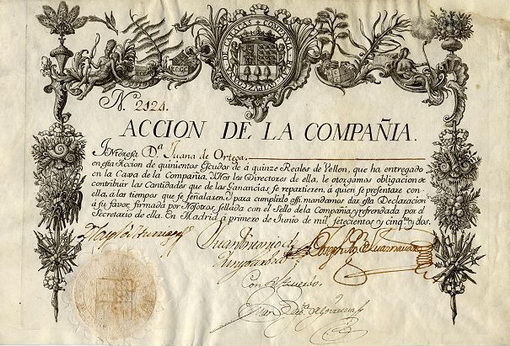 N.º 2424.
ACCION DE LA COMPAÑIA.
Interesa D.ª Juana de Ortega.
en esta Accion de quinientos Escudos de à quinze Reales de Vellon, que ha entregado
en la Caxa de la Compañia, Y Nos los Directores de ella, le otorgamos obligacion de
contribuir las Cantidades que de las Ganancias se repartieren, à quien se presentare con
ella, à los tiempos que se señalaren. Y para cumplirlo assi mandamos dar esta Declaracion
à su favor, firmada por Nosotros, sellada con el Sello de la Compañia y refrendada por el
Secretario de ella. En Madrid a primero de Junio de mil setecientos y cinq.ta y dos.
Con Acuerdo.
Juan